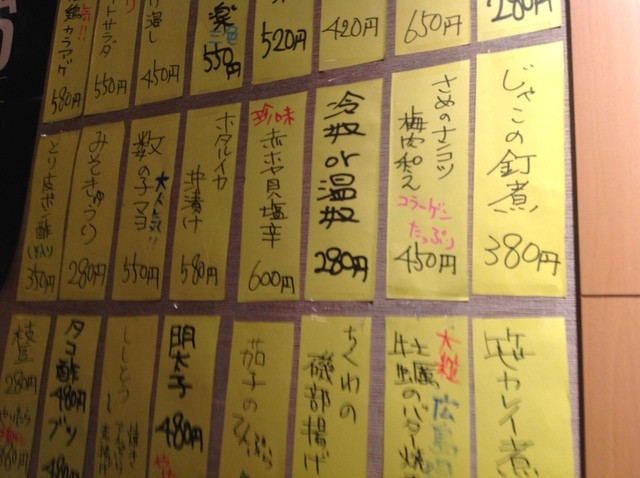 280円
650円
420円
520円
550円
450円
サラダ
550円
鶏カラアゲ
580円
じゃこの釘煮
380円
さめのナンコツ
梅肉和え
コラーゲン
たっぷり
450円
冷奴or温奴
280円
珍味
赤ホヤ貝塩辛
600円
ホタルイカ
沖漬け
580円
数の子マヨ
大人気!!
550円
みそきゅうり
280円
とり皮ポン酢
350円
カレイ煮
大粒
広島
牡蠣のバター焼
ちくわの
磯部揚げ
茄子の
天ぷら
明太子
480円
ししとう
タコ酢
480円
ブツ
480円
枝豆
280円